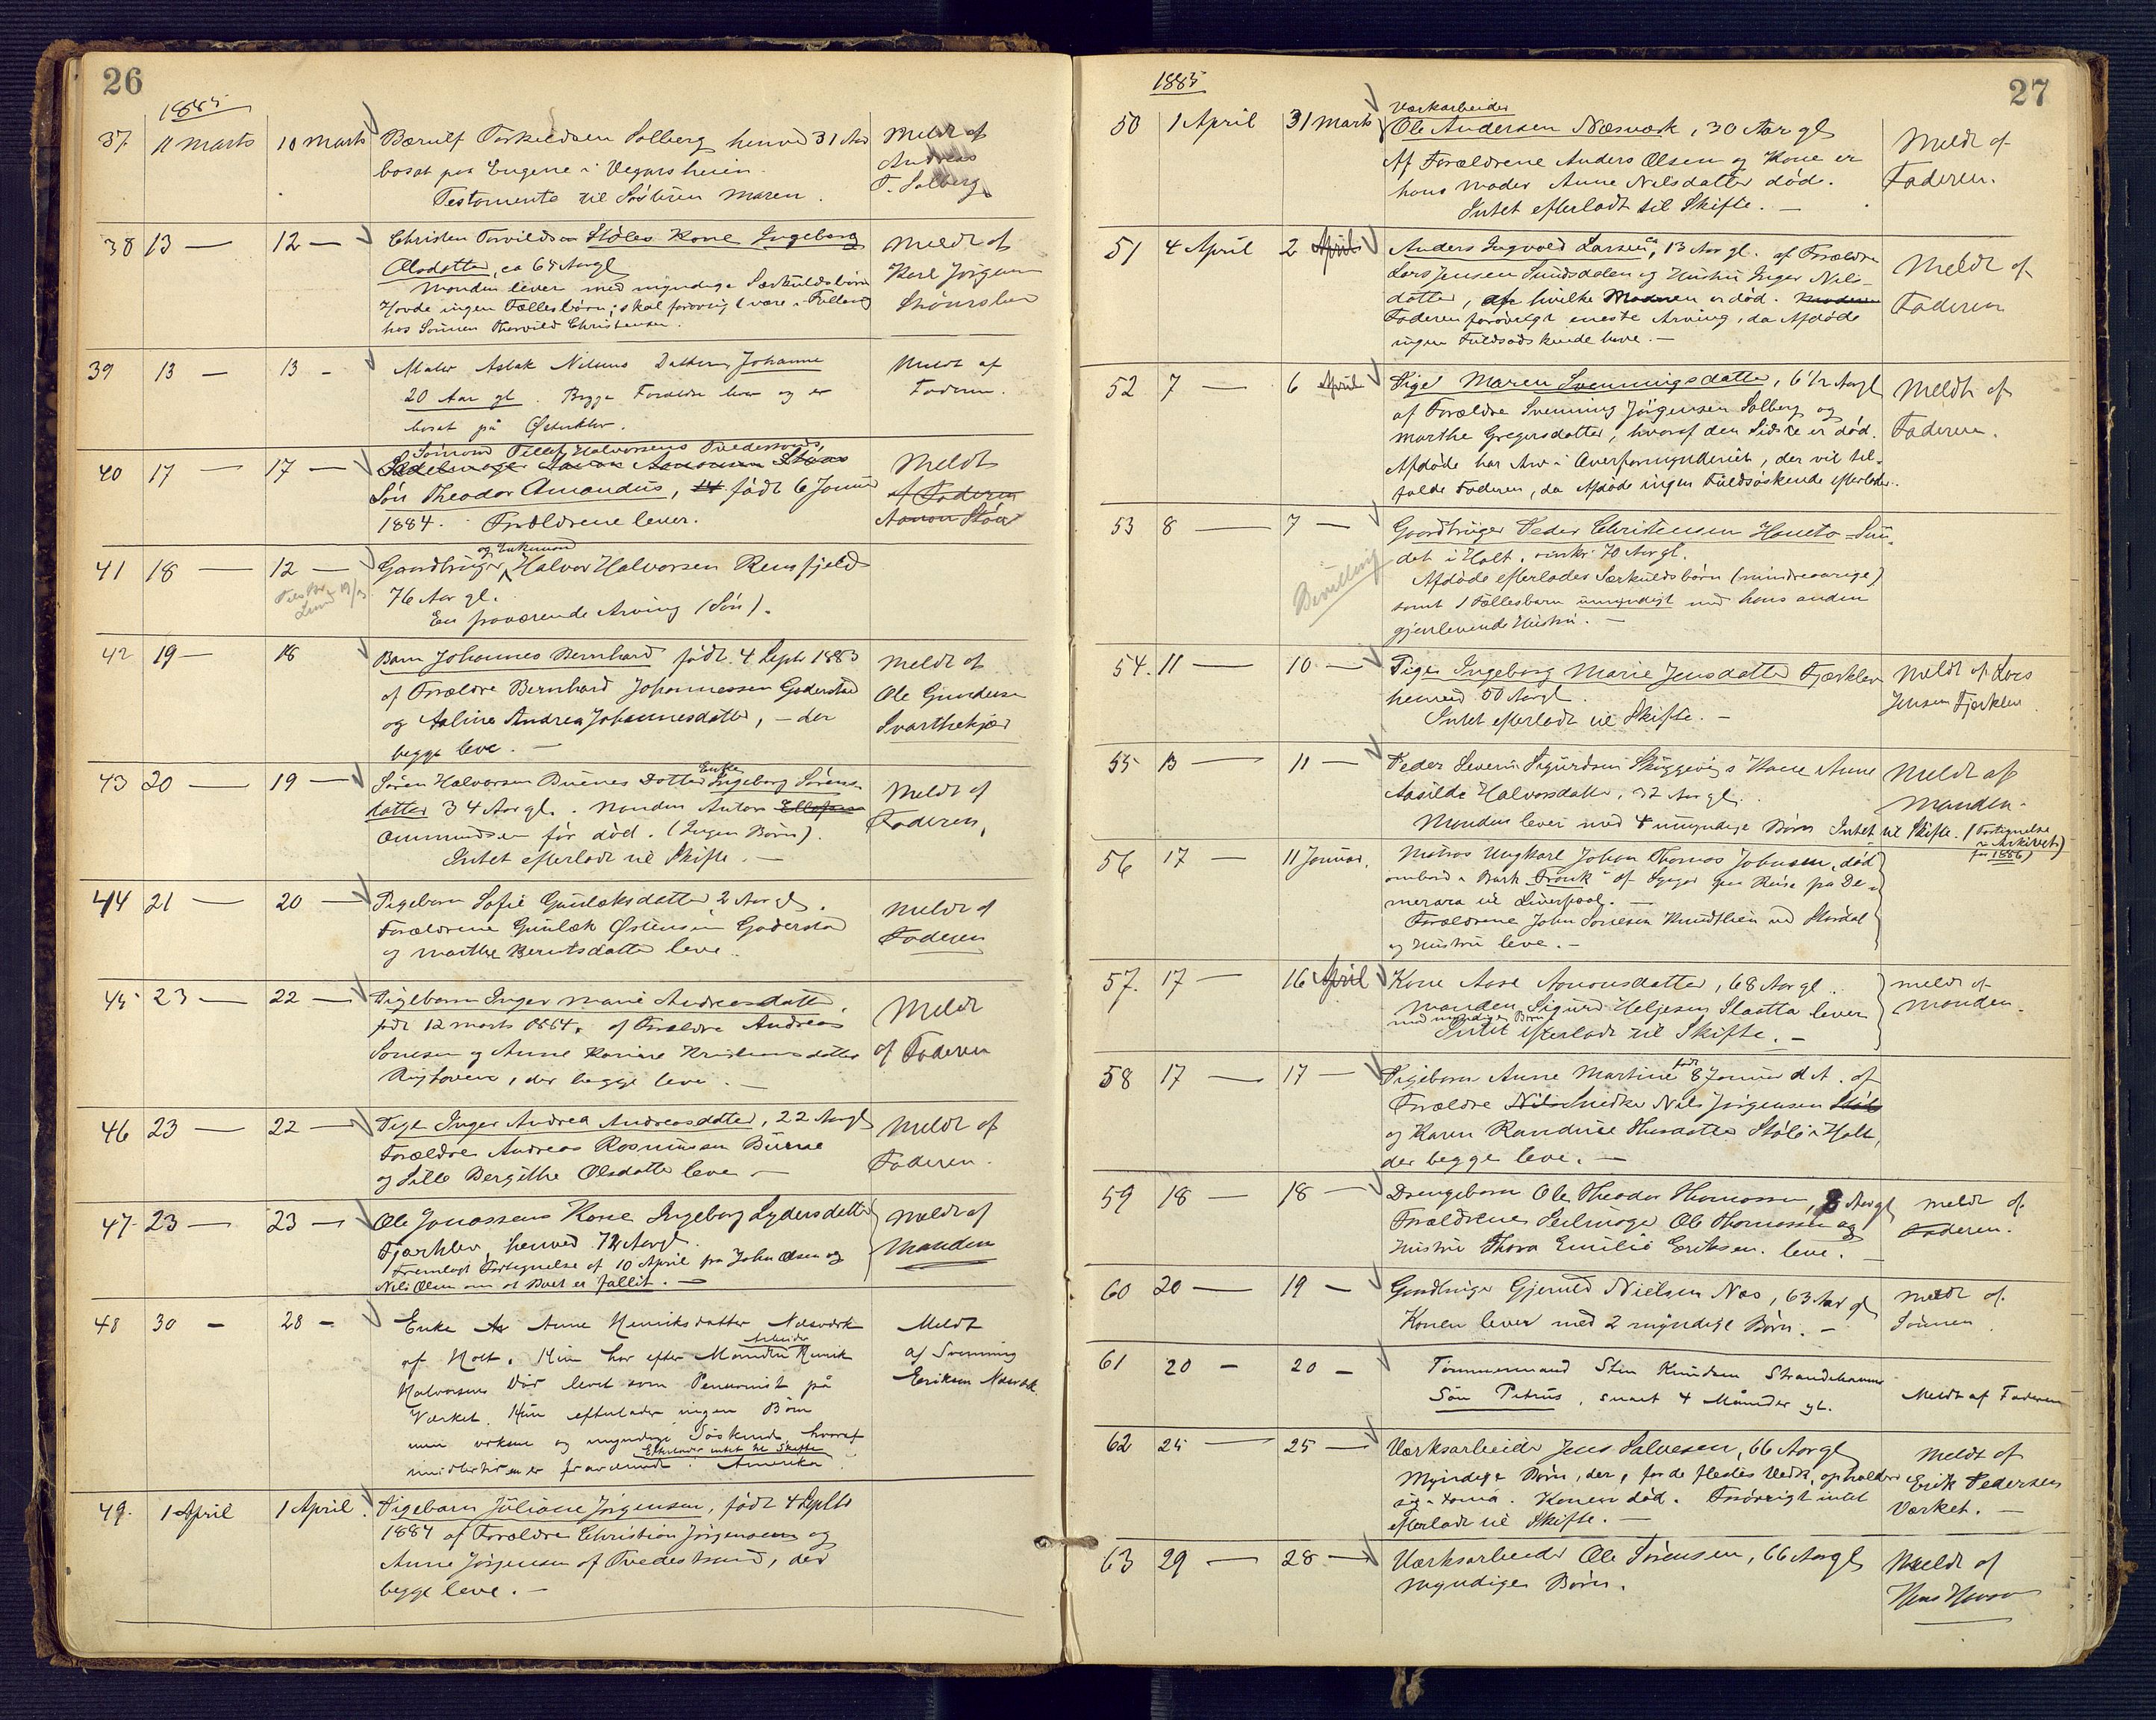 26
1885
37 11 Marts 10 Marts Bærulf Torkildsen Solberg henved 31 Aar
bosat paa Engene i Vegarsheien.
Testamente til Søsteren Maren.
Meldt af
Andreas
T. Solberg
38 13 — 12 — Christen Torvildsen Støles Kone Ingeborg
Olsdatter, ca 65 Aar gl
Manden lever med myndige Særkuldsbørn
Havde ingen Fællesbørn; skal forøvrig være i
hos Sønnen Thorvild Christensen.
Meldt af
Karl Jørgensen
39 13 — 13 - Maler Aslak Nilsens Datter Johanne
20 Aar gl. Begge Forældre lever og er
bosat på Østerklev.
Meldt af
Faderen.
40 17 — 17 — Sømand Tellef Halvorsens Tvedestrands,
Søn Theodor Amandus, 14 født 6 Januar
1884. Forældrene lever.
Meldt
af Faderen
Aanon Støle
41 18 — 12 — Gaardbruger og Enkemand Halvor Halvorsen Rensfjeld
76 Aar gl.
En fraværende Arving (Søn).
42 19 — 18 Barn Johannes Bernhard født 4 Septr 1883
af Forældre Bernhard Johannessen Goderstad
og Aline Andrea Johannesdatter, – der
begge leve. —
Meldt af
Ole Gundersen
Svarthekjær
43 20 — 19 — Søren Halvorsen Buenes Datter Enke Ingeborg Sørens-
datter 34 Aar gl. Manden Anton Ellefsen
Ommundsen før død. (Ingen Børn).
Intet efterladt til Skifte. —
Meldt af
Faderen,
44 21 — 20 — Pigebarn Sofie Gunlæksdatter 2 Aar gl.
Forældrene Gunlæk Østensen Goderstad
og Marthe Berntsdatter leve.
Meldt af
Faderen
45 23 — 22 — Pigebarn Inger Marie Andreasdatter,
født 12 Marts 1884, af Forældre Andreas
Sonesen og Anne Karine Kristensdatter
, der begge leve. —
Meldt
af Faderen
46 23 — 22 — Pige Inger Andrea Andreasdatter, 22 Aar gl
Forældre Andreas Rasmussen Buene
og Sille Bergithe Olsdatter leve —
Meldt af
Faderen.
47 23 — 23 — Ole Jonassens Kone Ingeborg Lydersdatter
Fjærklev, henved 72 Aar gl.
Fremlagt Fortegnelse af 10 April fra John Olsen og
Nils Olsen om at Boet er fallit. —
Meldt af
Manden
48 30 - 28 - Enke Anne Henriksdatter Næsværk
af Holt. Hun har efter Manden Arbeider Henrik
Halvorsens Død levet som Pensionist på
Værket. Hun efterlader ingen Børn
men voksne og myndige Søskende, hvoraf
Efterlader intet til Skifte
er fraværende i Amerika.
Meldt
af Svenning
Eriksen Næsværk.
49. 1 April 1 April. Pigebarn Juliane Jørgensen, født 4 Septbr
1884 af Forældre Christian Jørgensen og
Anne Jørgensen af Tvedestrand, der
begge leve. —
27
1885
50 1 April 31 Marts Værkarbeider
Ole Andersen Næsværk, 30 Aar gl
Af Forældrene Anders Olsen og Kone er
hans Moder Anne Nilsdatter død.
Intet efterladt til Skifte. —
Meldt af
Faderen.
51 4 April 2 April Anders Ingvald Larsen, ca 13 Aar gl. af Forældre
Lars Jensen Sundsdalen og Hustru Inger Nils-
datter, af hvilke Moderen er død. Moderen
Faderen forøvrigt eneste Arving, da Afdøde
ingen Fuldsødskende have. —
Meldt af
Faderen
52 7 — 6 April Pige Maren Svenningsdatter, 6 1/2 Aar gl
af Forældre Svenning Jörgensen Solberg og
Marthe Gregersdatter, hvoraf den Sidste er død.
Afdøde har Arv i Overformynderiet, der vil til-
falde Faderen, da Afdøde ingen Fuldsøskende efterlader.
Meldt af
Faderen.
53 8 — 7 — Gaardbruger Peder Christensen Hanto - Sun-
det i Holt, cirka 70 Aar gl.
Afdøde efterlader Særkuldsbørn (mindreaarige)
samt 1 Fællesbarn umyndigt med hans anden
gjenlevende Hustru. —
Bevilling
54. 11 — 10 — Pige Ingeborg Marie Jensdatter Fjærklev
henved 50 Aar gl.
Intet efterladt til Skifte. —
Meldt af Lars
Jensen Fjærklev.
55 13 — 11 — Peder Severin Sigurdsen Skuggevigs Kone Anne
Aasilde Halvorsdatter, 32 Aar gl.
Manden lever med 4 umyndige Børn Intet til Skifte. (Fortegnelse
i Arkivet
for 1886)
Meldt af
Manden.
56 17 — 11 Januar. Matros Ungkarl Johan Thomas Johnsen, død
ombord i Bark "Frank" af Lyngør paa Reise fra De-
merara til Liverpool. —
Forældrene John Sonesen Knudtheien ved Skordal
og Hustru leve. —
57. 17 — 16 April Kone Aase Aanonsdatter, 68 Aar gl.
Manden Sigurd Heljesen Slaatta lever
med myndige Børn
Intet efterladt til Skifte. —
Meldt af
Manden.
58 17 — 17 — Pigebarn Anne Martine født 8 Januar d. A. af
Forældre Nils Smedker Nils Jørgensen Støle
og Karen Randine Thordatter Støle i Holt,
der begge leve. —
59 18 — 18 — Drengebarn Ole Theodor Thomassen, 8 Aar gl
Forældrene Seilmager Ole Thomassen og
Hustru Thora Emilie Eriksen. leve. —
Meldt af
Faderen.
60 20 — 19 — Gaardbruger Gjerulf Nielsen Næs, 63 Aar gl
Konen lever med 2 myndige Børn. —
Meldt af
Sønnen
61 20 - 20 - Tømmermand Stin Knudsen Strandehavns
Søn Petrus, snart 4 Måneder gl.
Meldt af Faderen
62 25 — 25 — Værksarbeider Jens Salvesen, 66 Aar gl
Myndige Børn, der, for de flestes Vedk. opholder
sig . Konen død. Forøvrigt intet
efterladt til Skifte. —
Meldt af
Erik Pedersen
Værket. —
63 29 — 28 — Værksarbeider Ole Sørensen, 66 Aar gl
Myndige Børn.
Meldt af